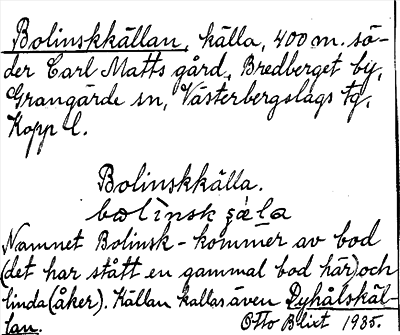 Bolinskkällan, källa, 400 m. sö-
der Carl Matts gård, Bredberget by,
Grangärde sn, Västerbergslags tg,
Kopp l.
Bolinskkälla.
bolinsk
Namnet Bolinsk- kommer av bod
(det har stått en gammal bod här) och
linda (åker). Källan kallas även Dyhålskäl-
lan.
Otto Blixt 1935.